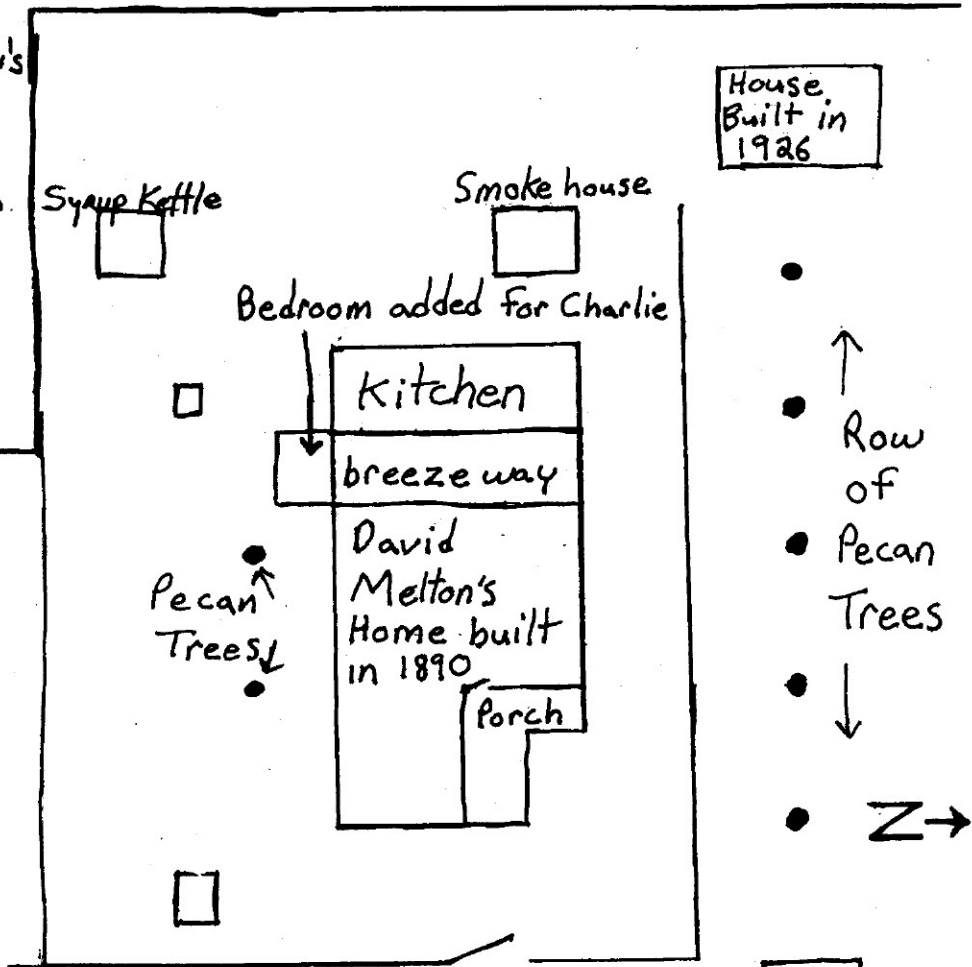 House
Built in
1926
Syrup Kettle
Smoke house
Bedroom added for Charlie
Kitchen
breeze way
David
Melton's
Home built
in 1890
Porch
Pecan
Trees
Row
of
Pecan
Trees
N